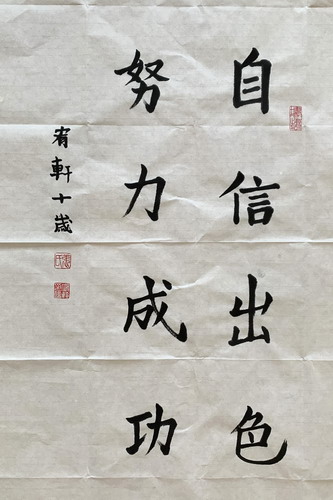 自信出色
努力成功
宥軒十歲